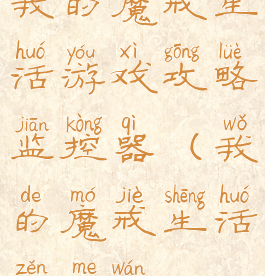 我的魔戒生
huó yóu xì gōng lüè
活游戏攻略
jiān kòng qì wǒ
监控器（我
de mó jiè shēng huó
的魔戒生活
zěn me wán